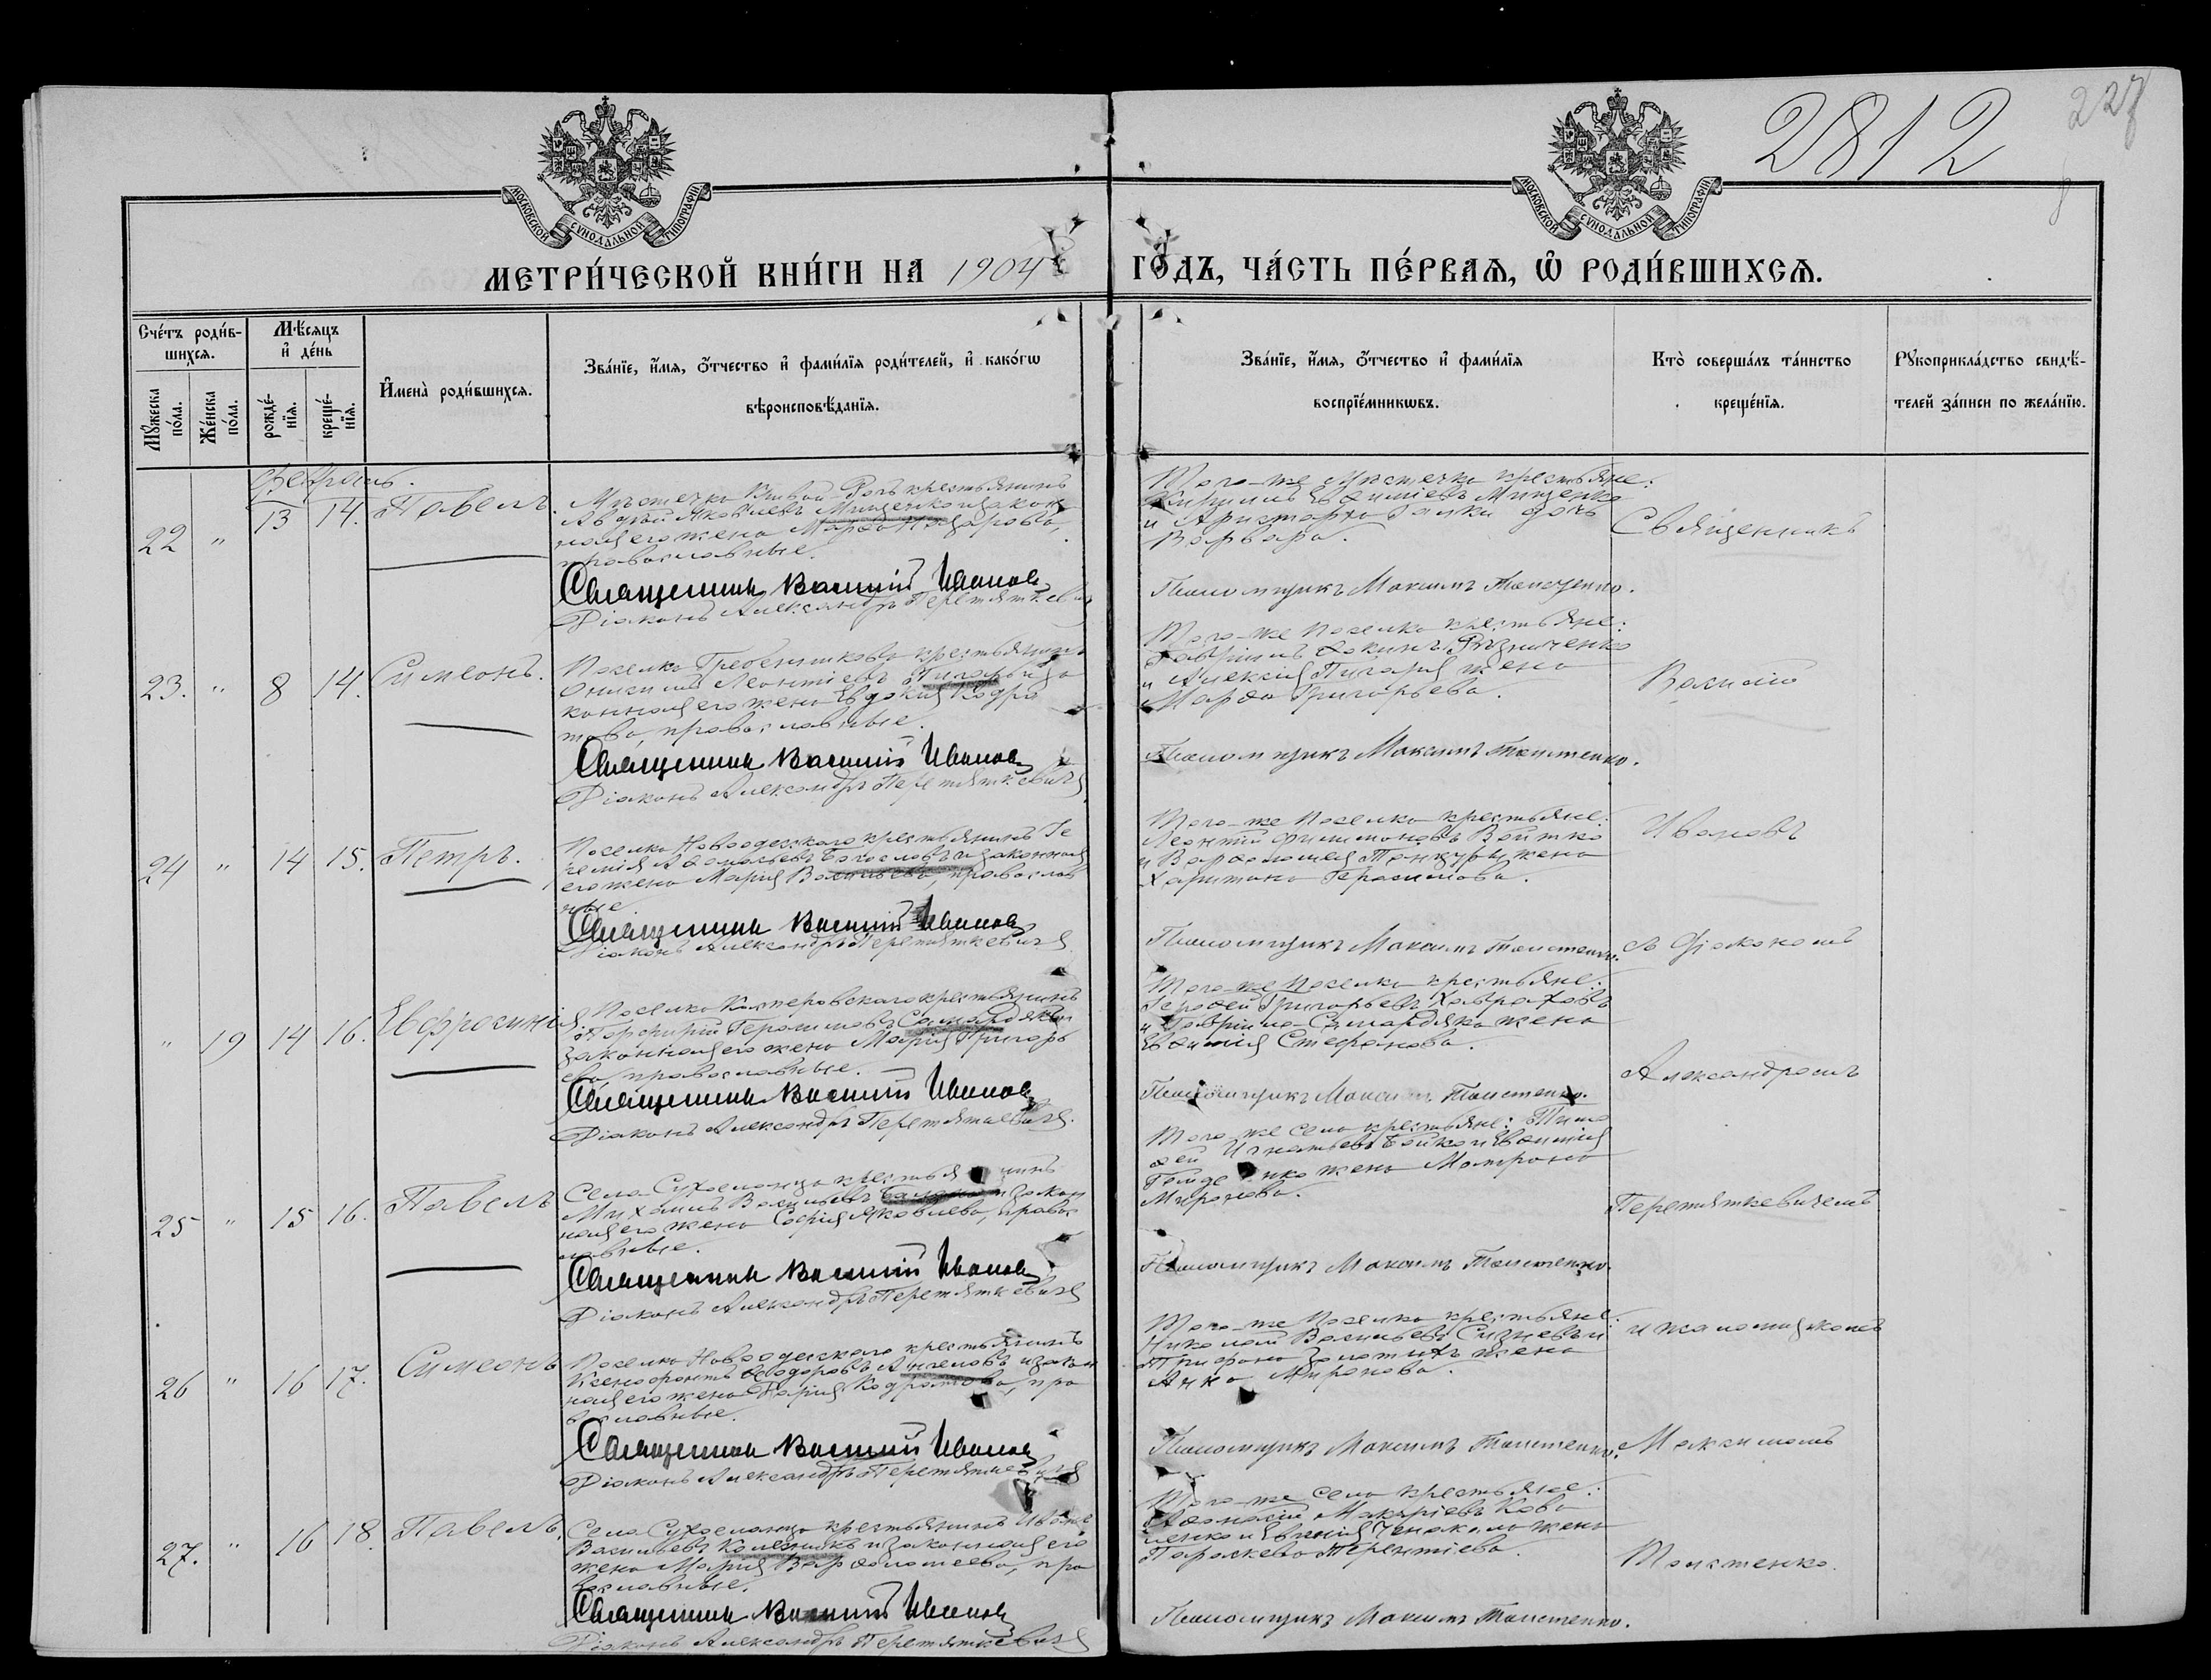 2812
227
МОСКОВСКОЙ СѴНОДАЛЬНОЙ ТИПОГРАФІИ
МОСКОВСКОЙ СѴНОДАЛЬНОЙ ТИПОГРАФІИ
МЕТРИ́ЧЕСКОЙ КНИ́ГИ НА 1904 ГО́ДЪ, ЧА́СТЬ ПЕ́РВАѦ, Ѡ҆ РОДИ́ВШИХСѦ.
Сче́тъ роди́в-
шихсѧ.
Мѣ́сѧцъ
и҆ де́нь
Мꙋ́жеска
по́ла.
Же́нска
по́ла.
рожде́-
нїѧ.
креще́-
нїѧ.
И҆мена̀ роди́вшихсѧ.
Зва́нїе, и҆́мѧ, ѻ҆́тчество и҆ фами́лїѧ роди́телей, и҆ како́гѡ
вѣроисповѣ́данїѧ.
Зва́нїе, и҆́мѧ, ѻ҆́тчество и҆ фами́лїѧ
воспрїе́мникѡвъ.
Кто̀ соверша́лъ та́инство
креще́нїѧ.
Рꙋкоприкла́дство свидѣ́-
телей за́писи по жела́нїю.
Февраль.
22 " 13 14. Павелъ.
Мѣстечка Кривой-Рогъ крестьянинъ
Яковлевъ Мищенко и закон
ная его жена Марфа Назарова,
православные.
Священникъ Василій Ивановъ
Діаконъ Александръ Перетяткевичъ
Того-же мѣстечка крестьяне:
Евфиміевъ Мищенко
и Аристарха Галки дочь
Варвара.
Псаломщикъ Максимъ Толстенко.
Священникъ
23. " 8 14. Симеонъ.
Поселка Гребенникова крестьянинъ
Онисимъ Леонтіевъ и за
конная его жена Евдокія Кодра
това, православные.
Священникъ Василій Ивановъ
Діаконъ Александръ Перетяткевичъ
Того-же поселка крестьяне:
Гавріилъ Резниченко
и Алексія жена
Марфа Григорьева.
Псаломщикъ Максимъ Толстенко.
Василій
24 " 14 15. Петръ.
Поселка Новоодесскаго крестьянинъ Іе
ремія и законная
его жена Марія Васильева, православ
ные.
Священникъ Василій Ивановъ
Діаконъ Александръ Перетяткевичъ
Того-же поселка крестьяне:
Леонтій Филимоновъ Войтко
и Варфоломея жена
Харитина Герасимова.
Псаломщикъ Максимъ Толстенко.
Ивановъ
съ діакономъ
" 19 14 16. Евфросинія
Поселка крестьянинъ
Порфирій Герасимовъ Самардакъ и
законная его жена Марія Григорь
ева, православные.
Священникъ Василій Ивановъ
Діаконъ Александръ Перетяткевичъ.
Того-же поселка крестьяне:
Григорьевъ
и Гавріила Самардака жена
Евфимія Стефанова.
Псаломщикъ Максимъ Толстенко.
Александромъ
25 " 15 16. Павелъ
Села Сухоеланца крестьянинъ
Михаилъ Васильевъ и закон
ная его жена Софія Яковлева, право
славные.
Священникъ Василій Ивановъ
Діаконъ Александръ Перетяткевичъ
Того-же села крестьяне: Тимо
фей Игнатьевъ Бойко и Евфимія
жена Матрона
Миронова.
Псаломщикъ Максимъ Толстенко.
Перетяткевичемъ
26 " 16 17. Симеонъ
Поселка Новоодесскаго крестьянинъ
Ксенофонтъ Ѳеодоровъ Ангеловъ и закон
ная его жена Марія Кодратова, пра
вославные.
Священникъ Василій Ивановъ
Діаконъ Александръ Перетяткевичъ
Того-же поселка крестьяне:
Николай Васильевъ и
Трифона жена
Анна
Псаломщикъ Максимъ Толстенко.
и псаломщикомъ
Максимомъ
27. " 16 18. Павелъ.
Села Сухоеланца крестьянинъ Иванъ
Васильевъ Колесникъ и законная его
жена Марія Варфоломеева, пра
вославные.
Священникъ Василій Ивановъ
Діаконъ Александръ Перетяткевичъ
Того-же села крестьяне:
Аѳанасій Макаріевъ Кова
ленко и Евгенія жена
Параскева Терентіева.
Псаломщикъ Максимъ Толстенко.
Толстенко.